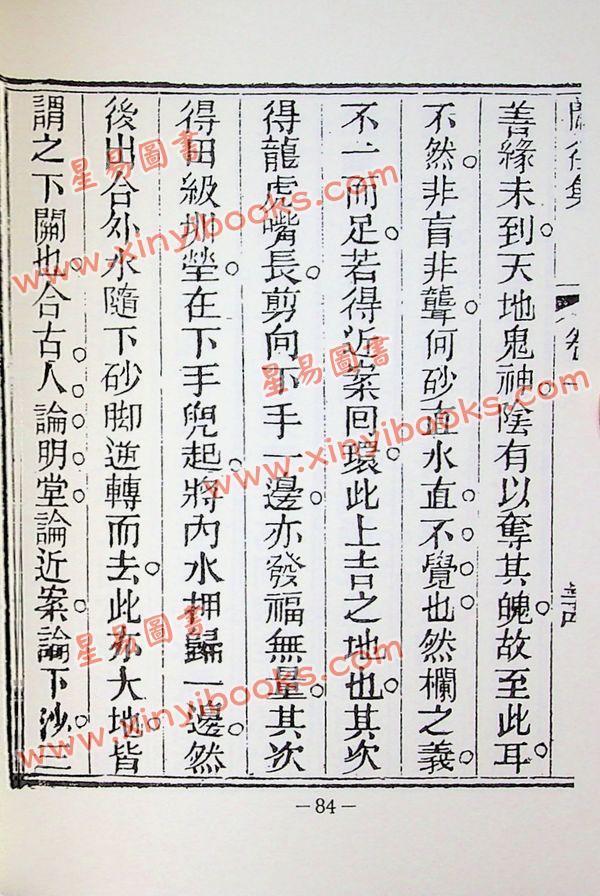 善緣未到。天地鬼神。陰有以奪其魄。故至此耳。
不然。非盲非聾。何砂直水直。不。覺。也。然欄之義。
不一而足。若得近案回環。此上吉之地也。其次
得龍虎嘴長。剪向下手一邊。亦發福無量。其次
得田級塋。在下手兜起。將內水押歸一邊。然
後出合外水隨下砂脚逆轉而去。此亦大地。皆
謂之下關也。合古。人。論。明。堂。論近案。論下沙。三
—84—
星易圖書
www.xinyibooks.com
星易圖書
www.xinyibooks.com
星易圖書
www.xinyibooks.com